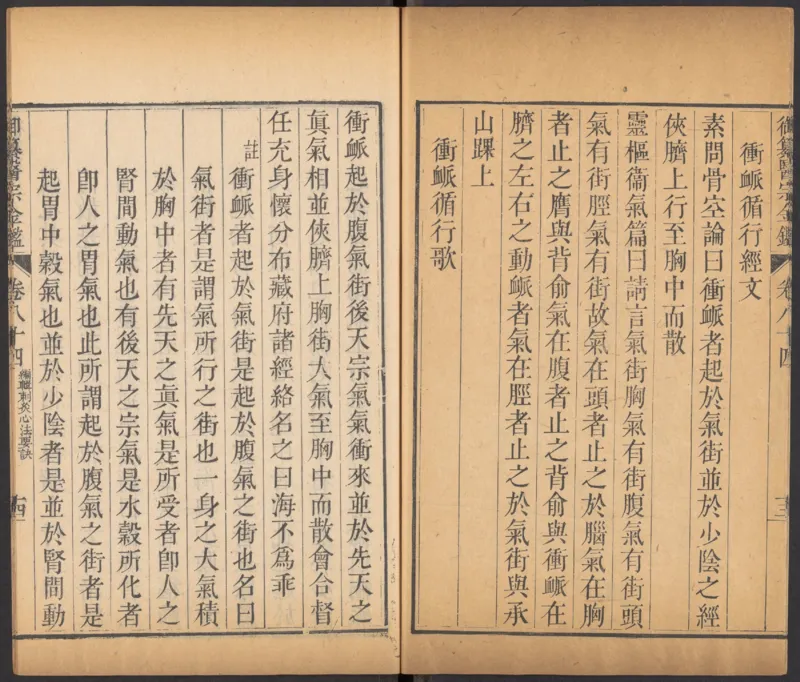 衝䘑循行經文
素問骨空論曰衝䘑者起於氣街並於少陰之經
俠臍上行至胸中而散
靈樞衞氣篇曰請言氣街胸氣有街腹氣有街頭
氣有街脛氣有街故氣在頭者止之於腦氣在胸
者止之膺與背俞氣在腹者止之背俞與衝䘑在
臍之左右之動䘑者氣在脛者止之於氣街與承
山踝上
衝䘑循行歌
衝䘑起於腹氣街後天宗氣氣衝來並於先天之
眞氣相並俠臍上胸街大氣至胸中而散會合督
任充身懷分布藏府諸經絡名之曰海不爲乖
註衝䘑者起於氣街是起於腹氣之街也名曰
氣街者是謂氣所行之街也一身之大氣積
於胸中者有先天之眞氣是所受者卽人之
腎間動氣也有後天之宗氣是水穀所化者
卽人之胃氣也此所謂起於腹氣之街者是
起胃中穀氣也並於少陰者是並於腎間動
御纂醫宗金鑑
卷八十四
編輯刺灸心法要訣
四